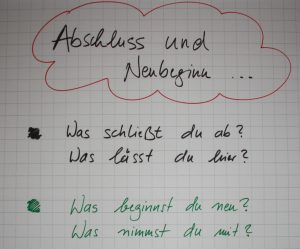 Abschluss und
Neubeginn ...
Was schließt du ab?
Was lässt du hier?
Was beginnst du neu?
Was nimmst du mit?